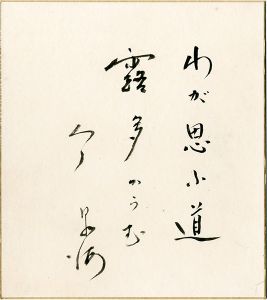 わが思ふ道
露多からむ